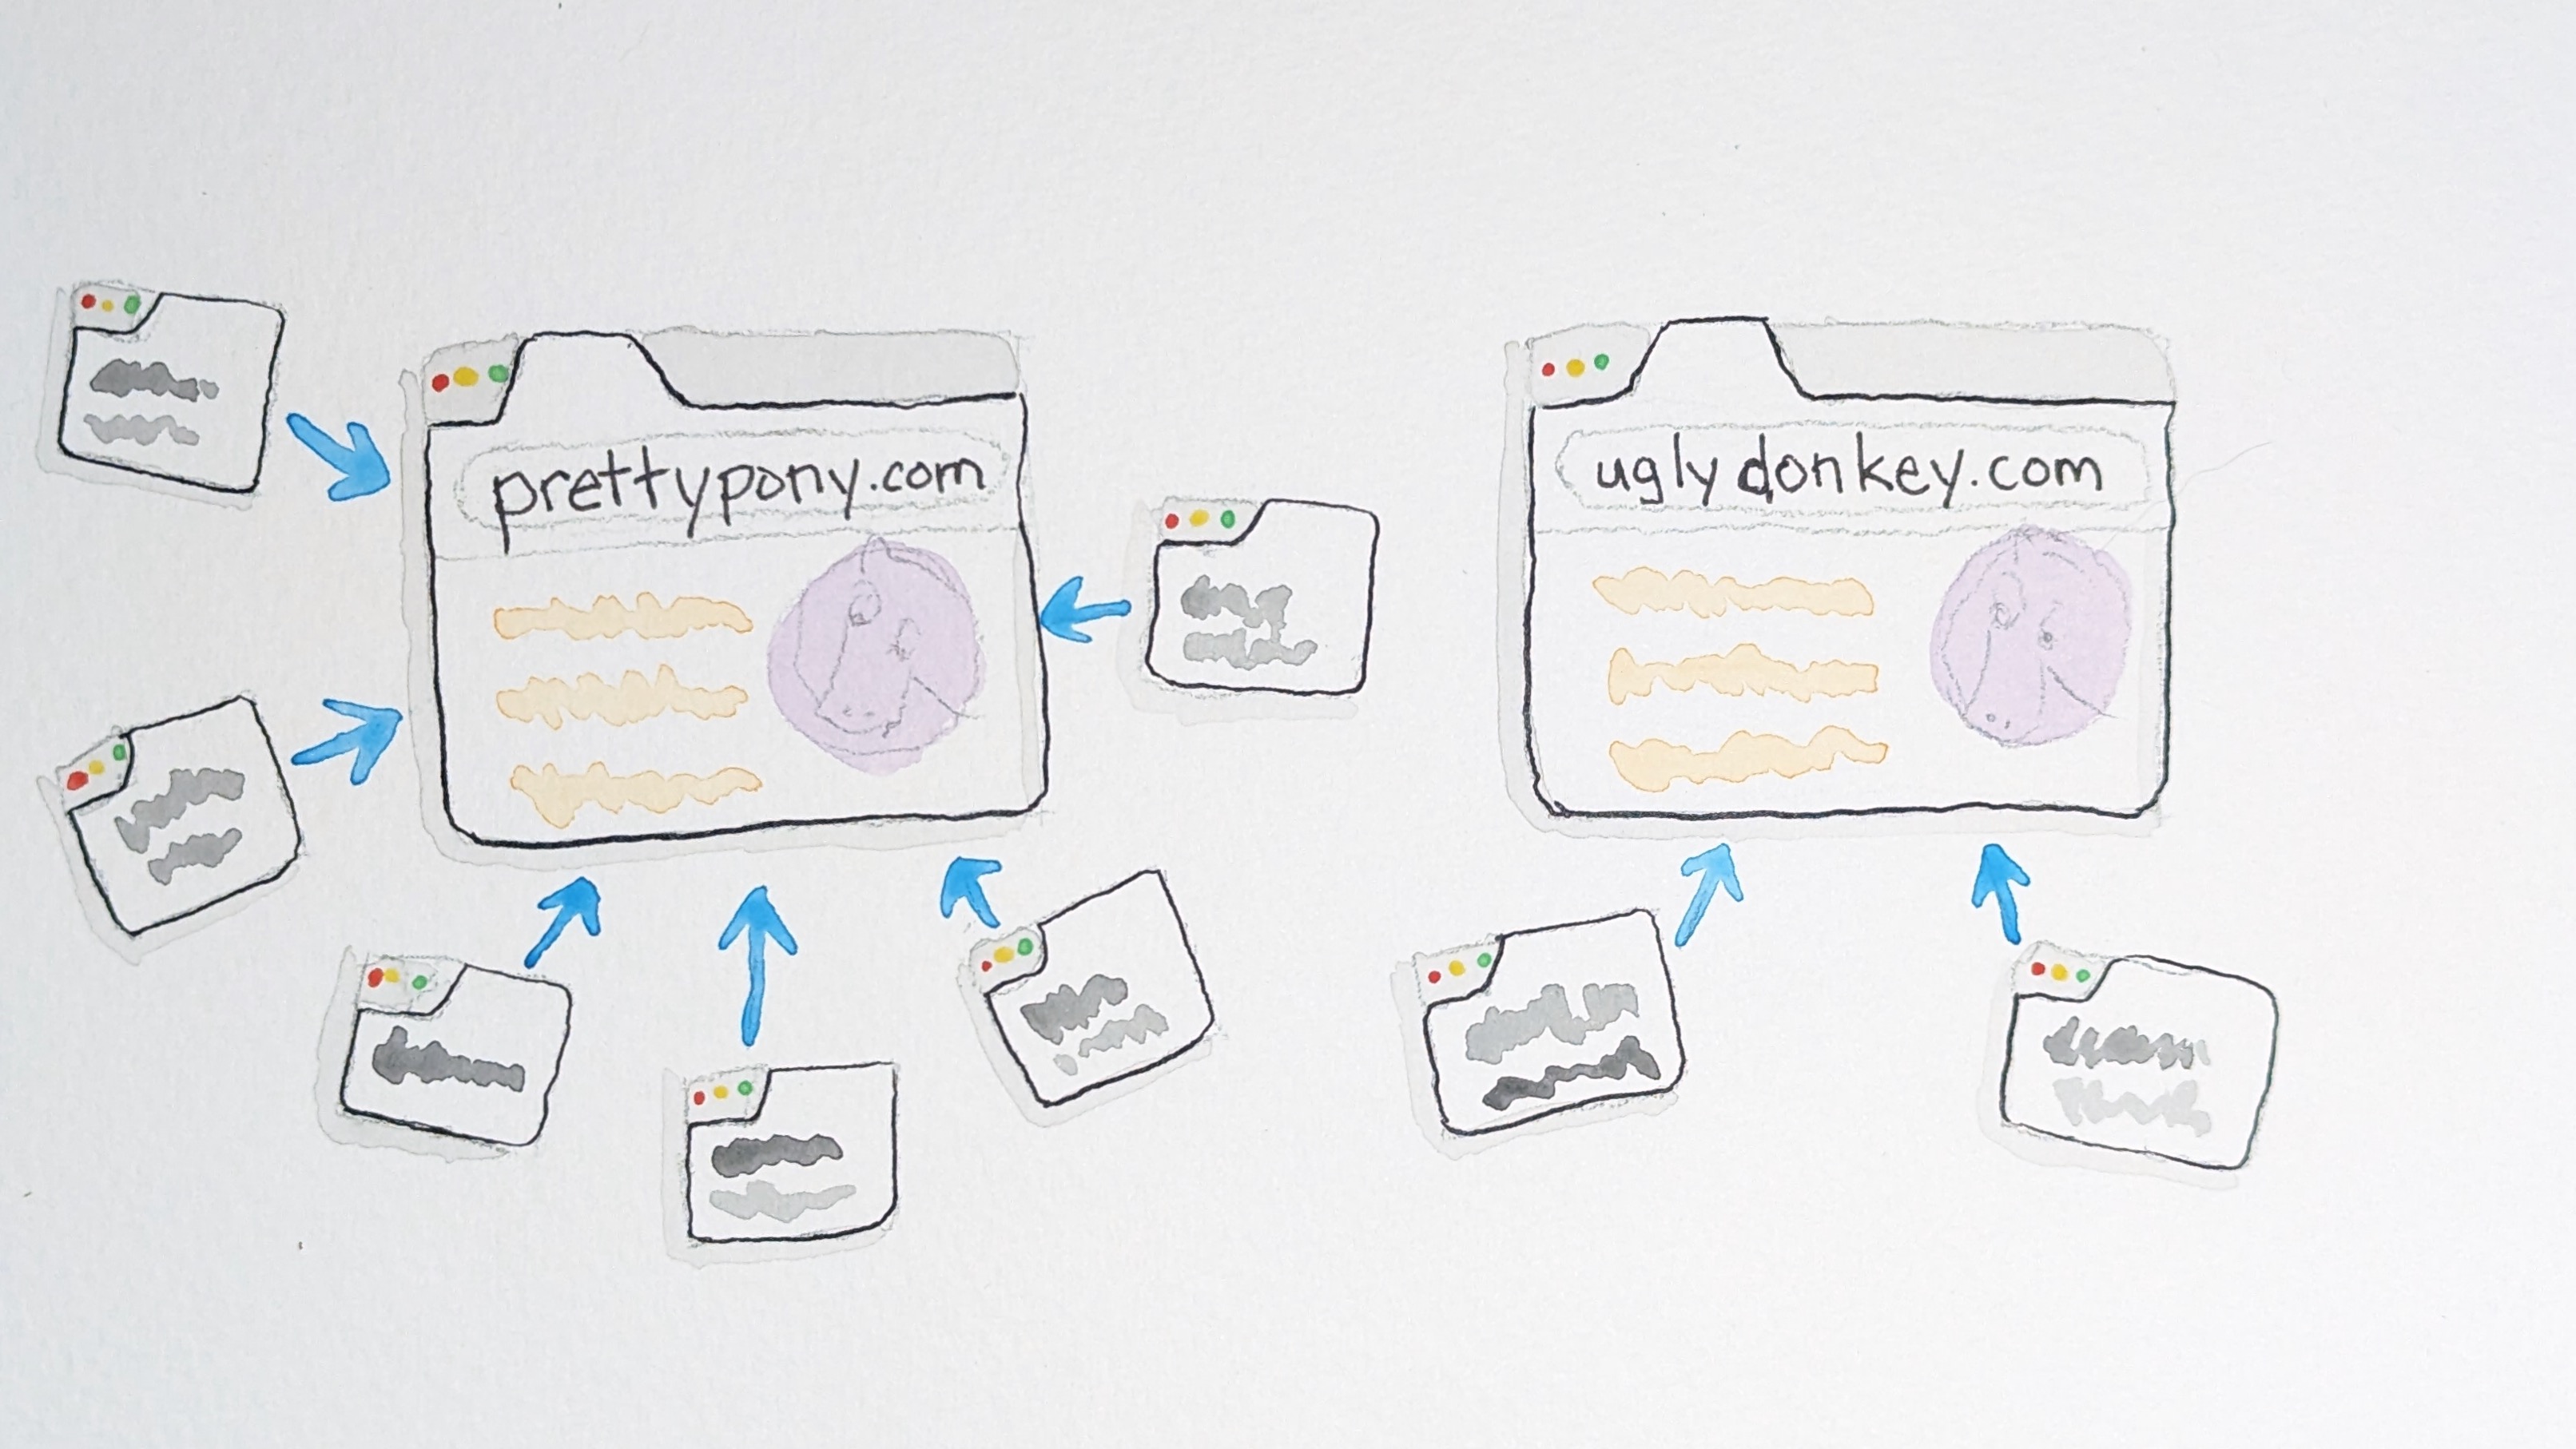 prettypony.com
uglydonkey.com